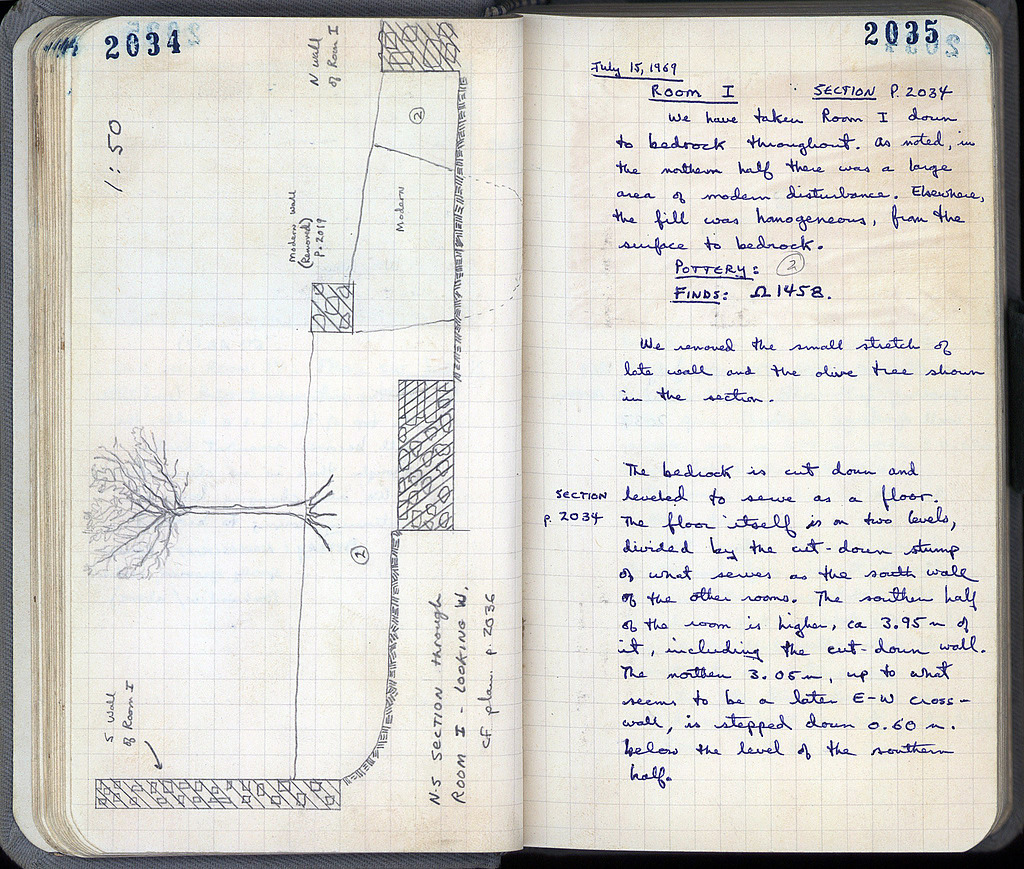 2034
N wall
of Room I
1:50
②
Modern
Modern wall
(Removed)
P. 2019
②
S wall
of Room I
N-S SECTION through
ROOM I - LOOKING W.
cf. plan p. 2036
2035
July 15, 1969
ROOM I SECTION P. 2034
We have taken Room I down
to bedrock throughout. As noted, in
the northern half there was a large
area of modern disturbance. Elsewhere,
the fill was homogeneous, from the
surface to bedrock.
POTTERY: ②
FINDS: Ω 1458.
We removed the small stretch of
late wall and the olive tree shown
in the section.
The bedrock is cut down and
SECTION leveled to serve as a floor.
p. 2034 The floor itself is on two levels,
divided by the cut-down stump
of what serves as the south wall
of the other rooms. The southern half
of the room is higher, ca 3.95 m of
it, including the cut-down wall.
The northern 3.05 m, up to what
seems to be a later E-W cross-
wall, is stepped down 0.60 m.
below the level of the southern
half.